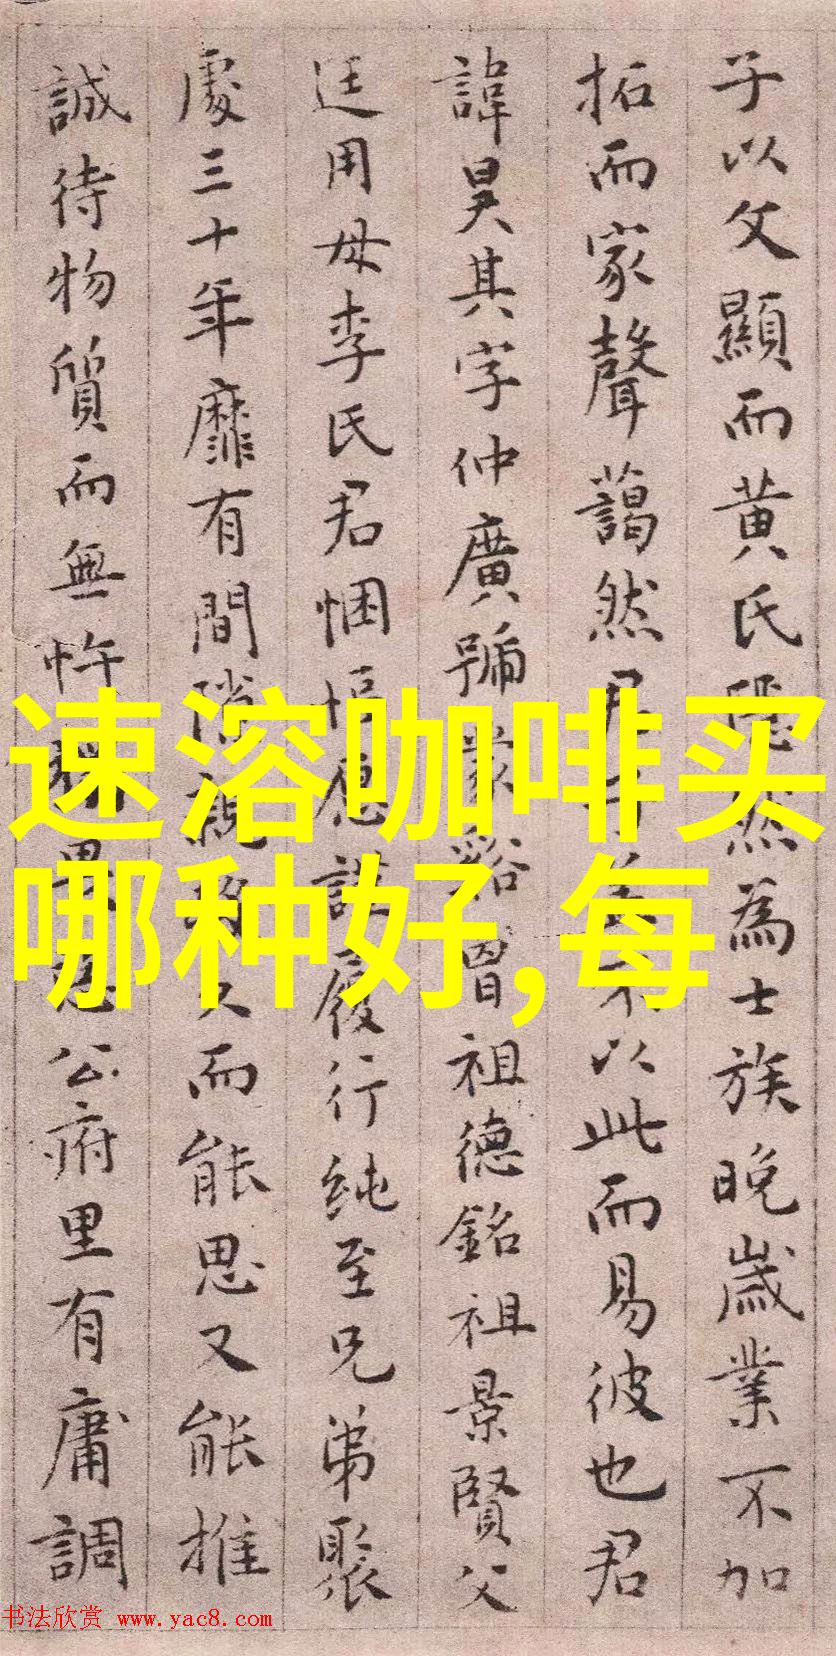 子以父顯而黄氏隱然為士族晚歲業不加
拓而家聲藹然君子以此而易彼也君
諱昊其字仲廣號蒙谿曾祖德銘祖景賢父
廷用母李氏君悃愊愿謹履行純至兄弟聚
處三十年靡有間隙親沒久而能思又能推
誠待物質而無忤公府里有庸調
速溶咖啡买
哪种好,每
书法欣赏 www.yac8.com